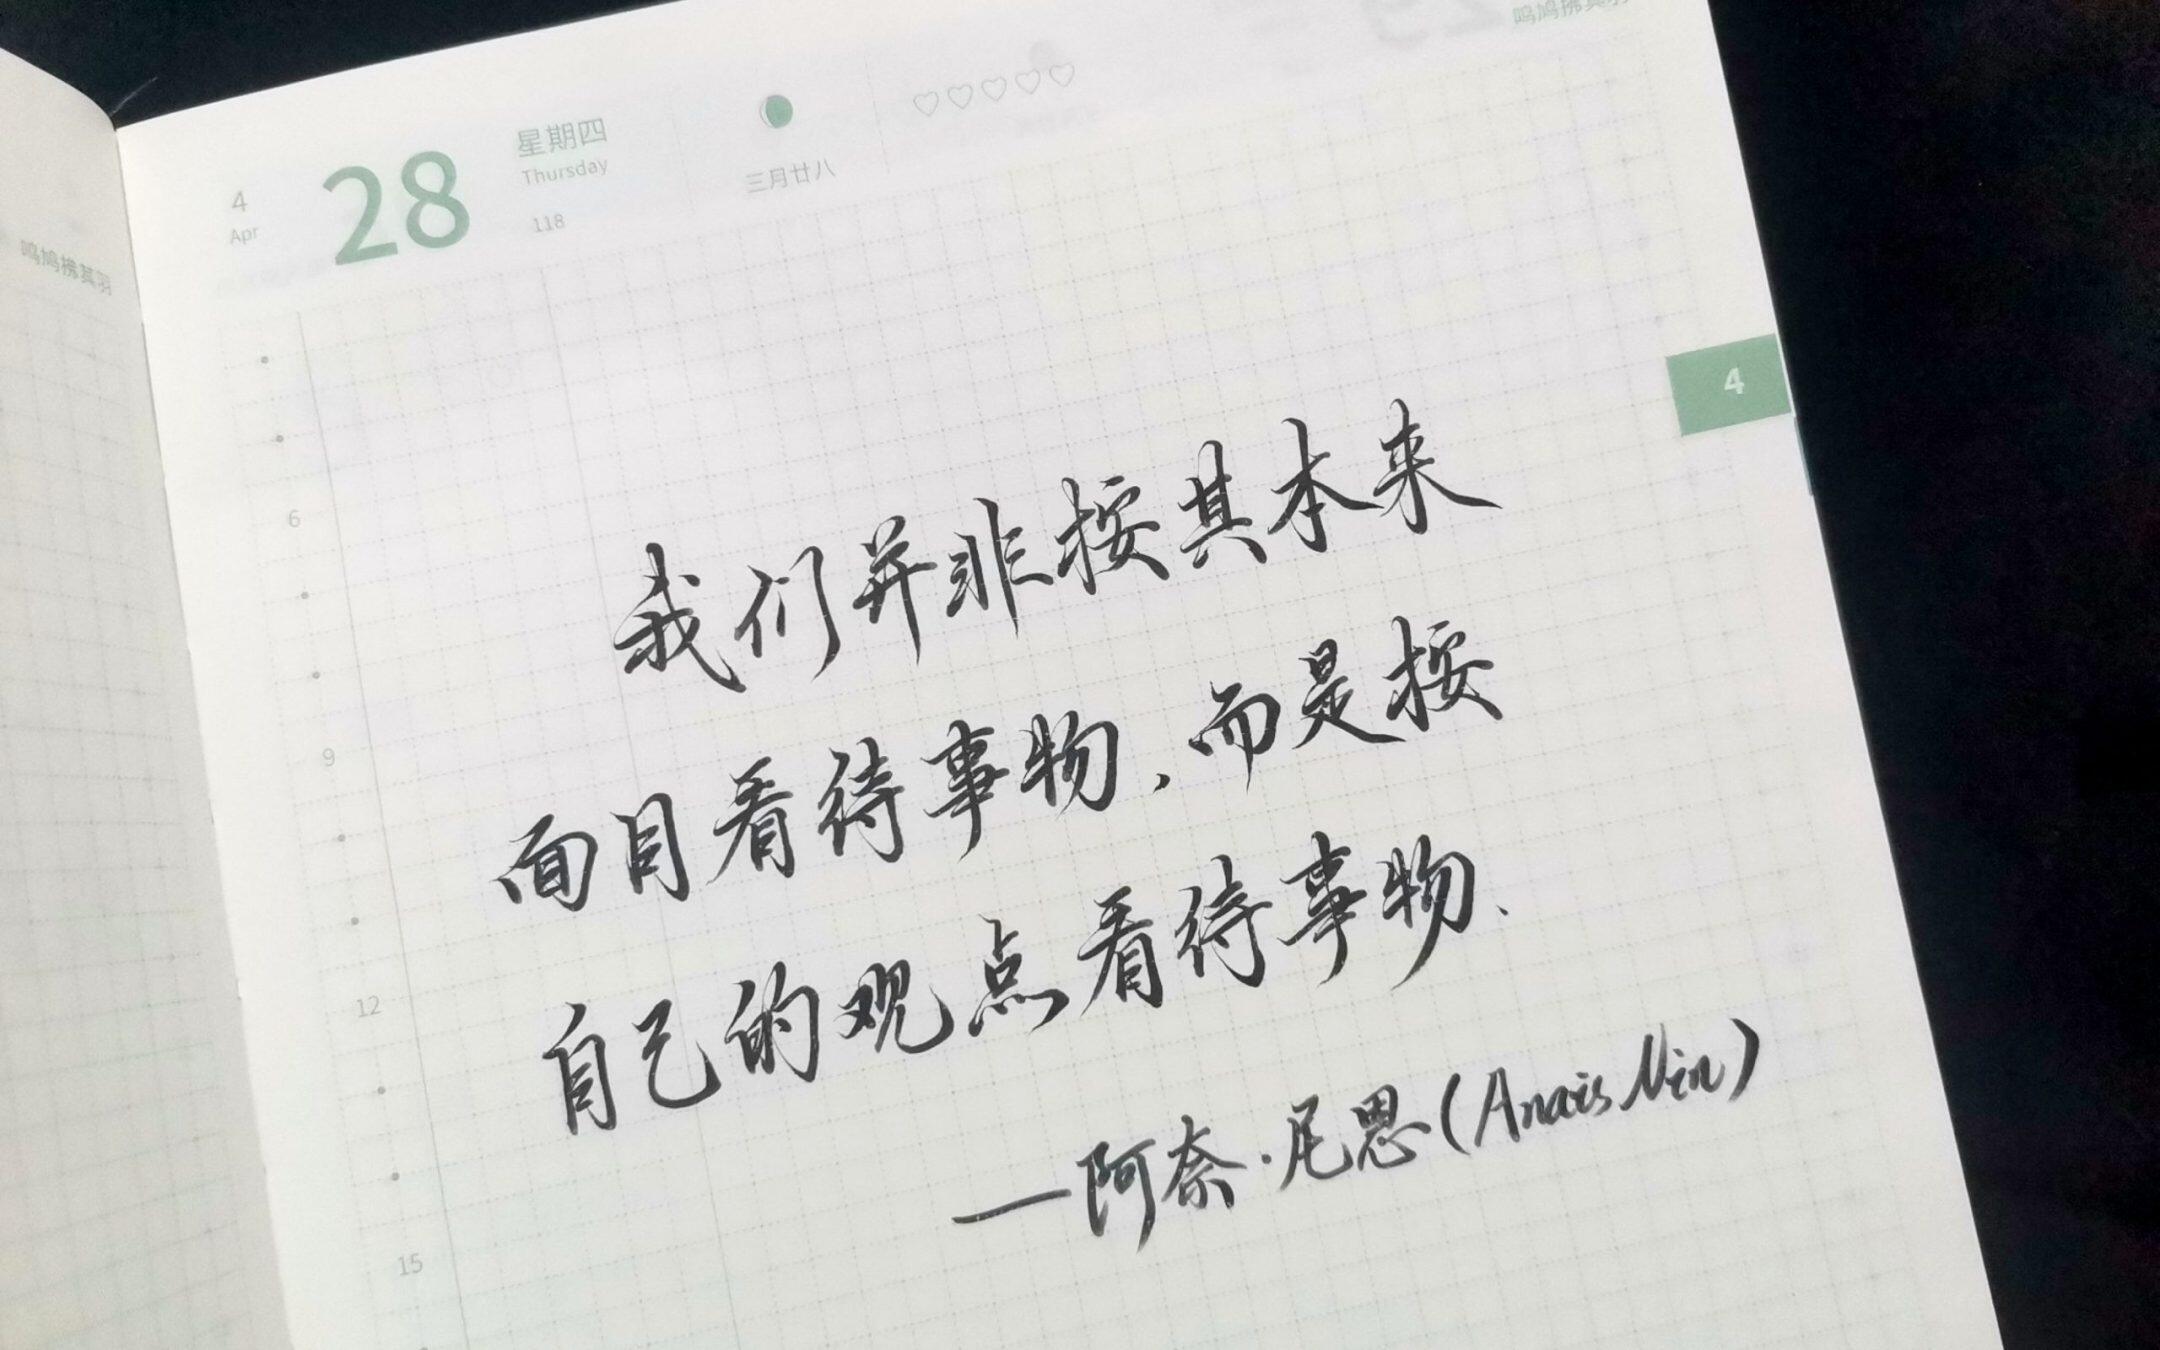 鸣鸠拂其羽
4
Apr
28
星期四
Thursday
118
三月廿八
鸣鸠拂其羽
4
6
9
12
15
我们并非按其本来
面目看待事物,而是按
自己的观点看待事物.
—阿奈·尼恩(Anais Nin)